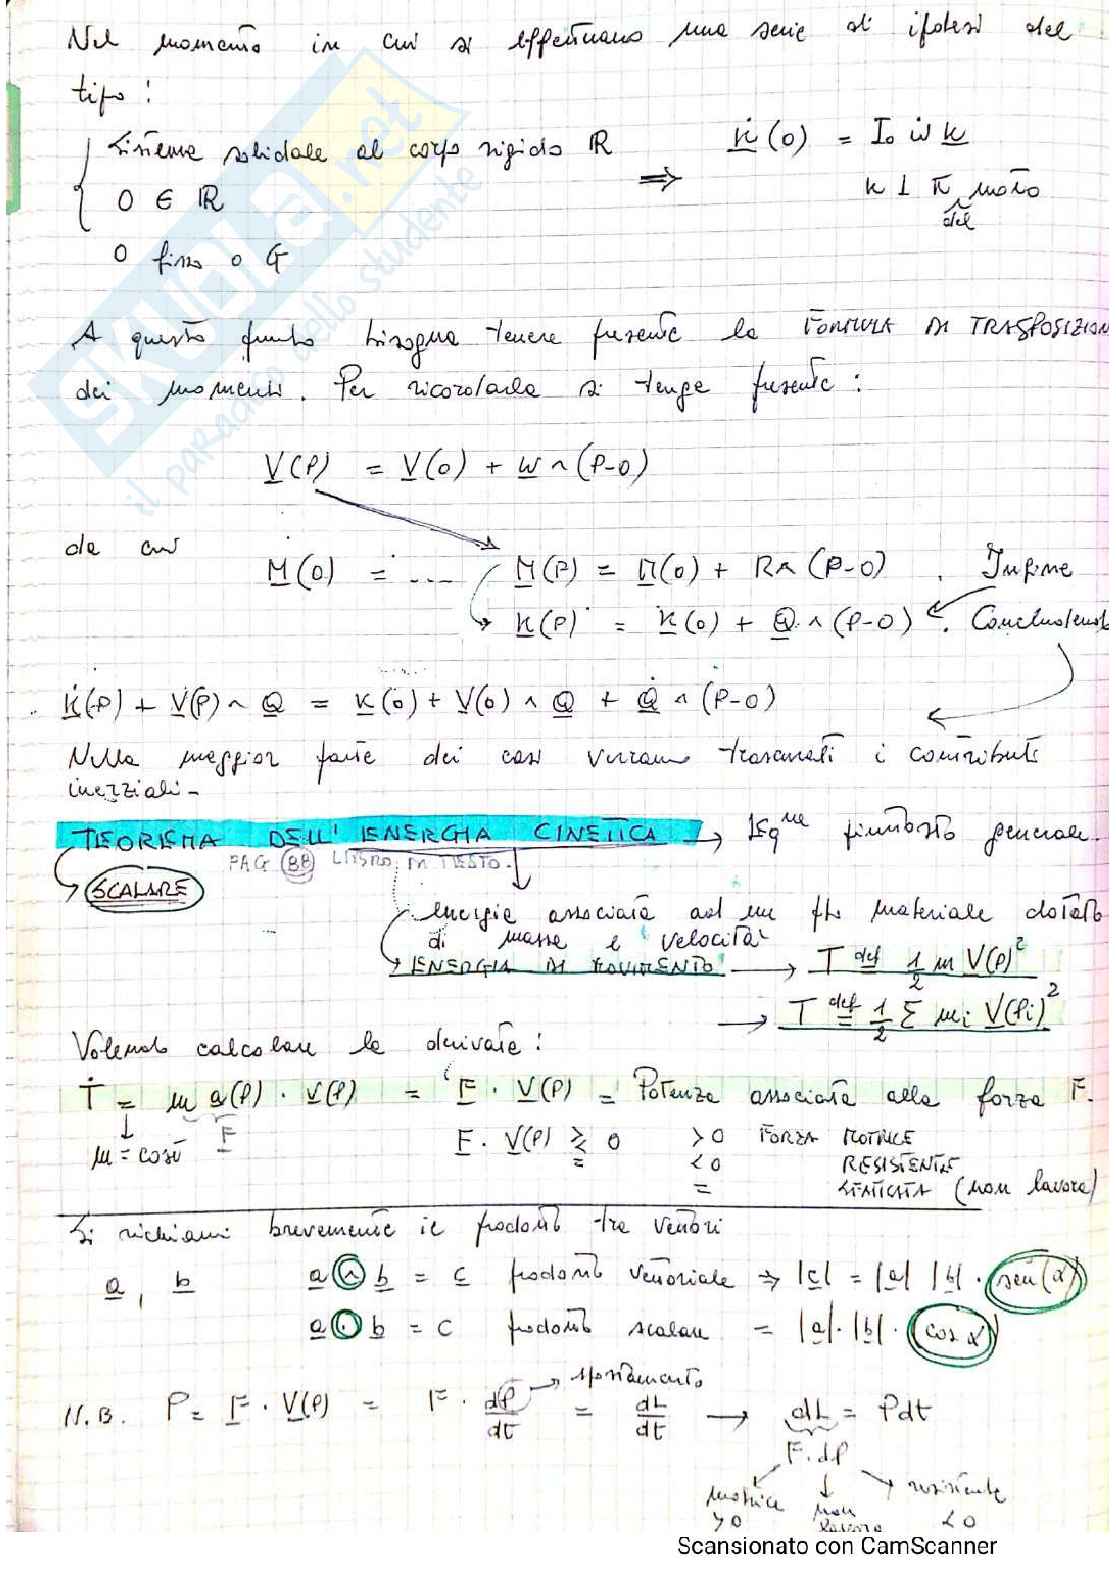 Nel momento in cui si effettuano una serie di ipotesi del
tipo:
Sistema solidale al corpo rigido ℝ
O ∈ ℝ
O fisso o G
⇒ K̇(O) = I₀ ω̇ k
k ⊥ π moto
del
A questo punto bisogna tenere presente la FORMULA DI TRASPOSIZION
dei momenti. Per ricordarla si tenga presente:
V(P) = V(O) + ω ∧ (P-O)
da cui
M(O) = .... M(P) = M(O) + R ∧ (P-O). Infine
K(P) = K(O) + Q ∧ (P-O). Concludend
K̇(P) + V(P) ∧ Q = K̇(O) + V(O) ∧ Q + Q̇ ∧ (P-O)
Nella maggior parte dei casi verranno trascurati i contributi
inerziali -
TEOREMA DELL'ENERGIA CINETICA → Eq^ne piuttosto generale.
PAG 88 LIBRO DI TESTO.
SCALARE
energia associata ad un pto materiale dotato
di massa e velocità
ENERGIA DI MOVIMENTO → T def= 1/2 m V(P)²
→ T def= 1/2 Σ mi V(Pi)²
Volendo calcolare la derivata:
Ṫ = m a(P) · V(P) = F · V(P) = Potenza associata alla forza F.
m = cost F
F · V(P) ⋛ 0 >0 FORZA MOTRICE
<0 RESISTENTE
= STATICA (non lavora)
Si richiami brevemente il prodotto tra vettori
a, b a ∧ b = c prodotto vettoriale ⇒ |c| = |a| |b| · sen(α)
a · b = c prodotto scalare = |a| · |b| · cos α
spostamento
N.B. P = F · V(P) = F · dP/dt = dL/dt → dL = Pdt
F · dP
motrice >0
non lavora
resistente <0
Scansionato con CamScanner
SKUOLA.net
il paradiso dello studente